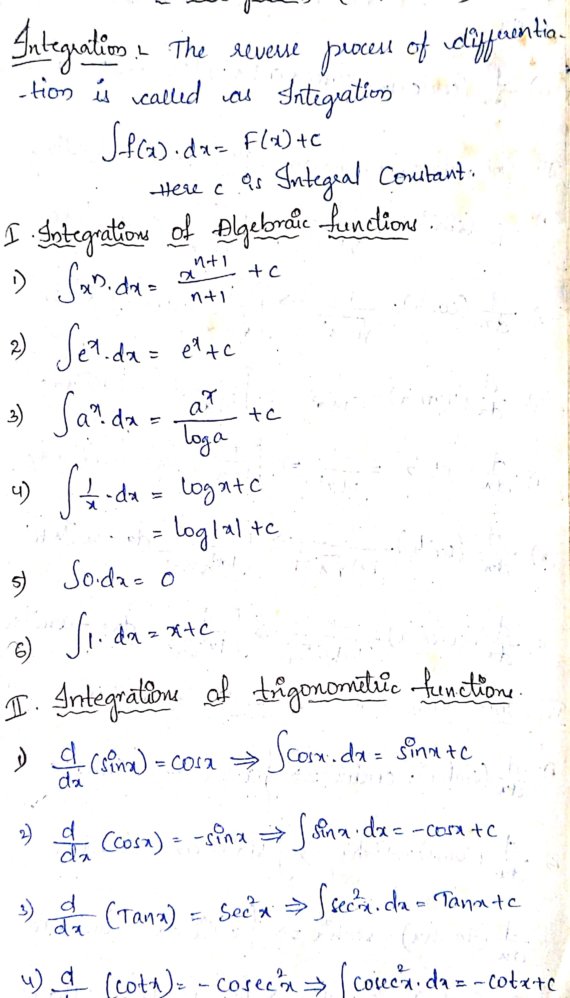 Integration :- The reverse process of differentia-
-tion is called as Integration
∫f(x).dx = F(x)+c
Here c is Integral Constant.
I. Integrations of Algebraic functions.
1) ∫xⁿ.dx = xⁿ⁺¹/n+1 + c
2) ∫eˣ.dx = eˣ+c
3) ∫aˣ.dx = aˣ/log a + c
4) ∫1/x.dx = log x+c
= log|x| +c
5) ∫0.dx = 0
6) ∫1.dx = x+c
II. Integrations of trigonometric functions.
1) d/dx (sinx) = cosx ⇒ ∫cosx.dx = sinx+c.
2) d/dx (cosx) = -sinx ⇒ ∫sinx.dx = -cosx+c.
3) d/dx (Tanx) = Sec²x ⇒ ∫sec²x.dx = Tanx+c
4) d (cotx) = -cosec²x ⇒ ∫cosec²x.dx = -cotx+c